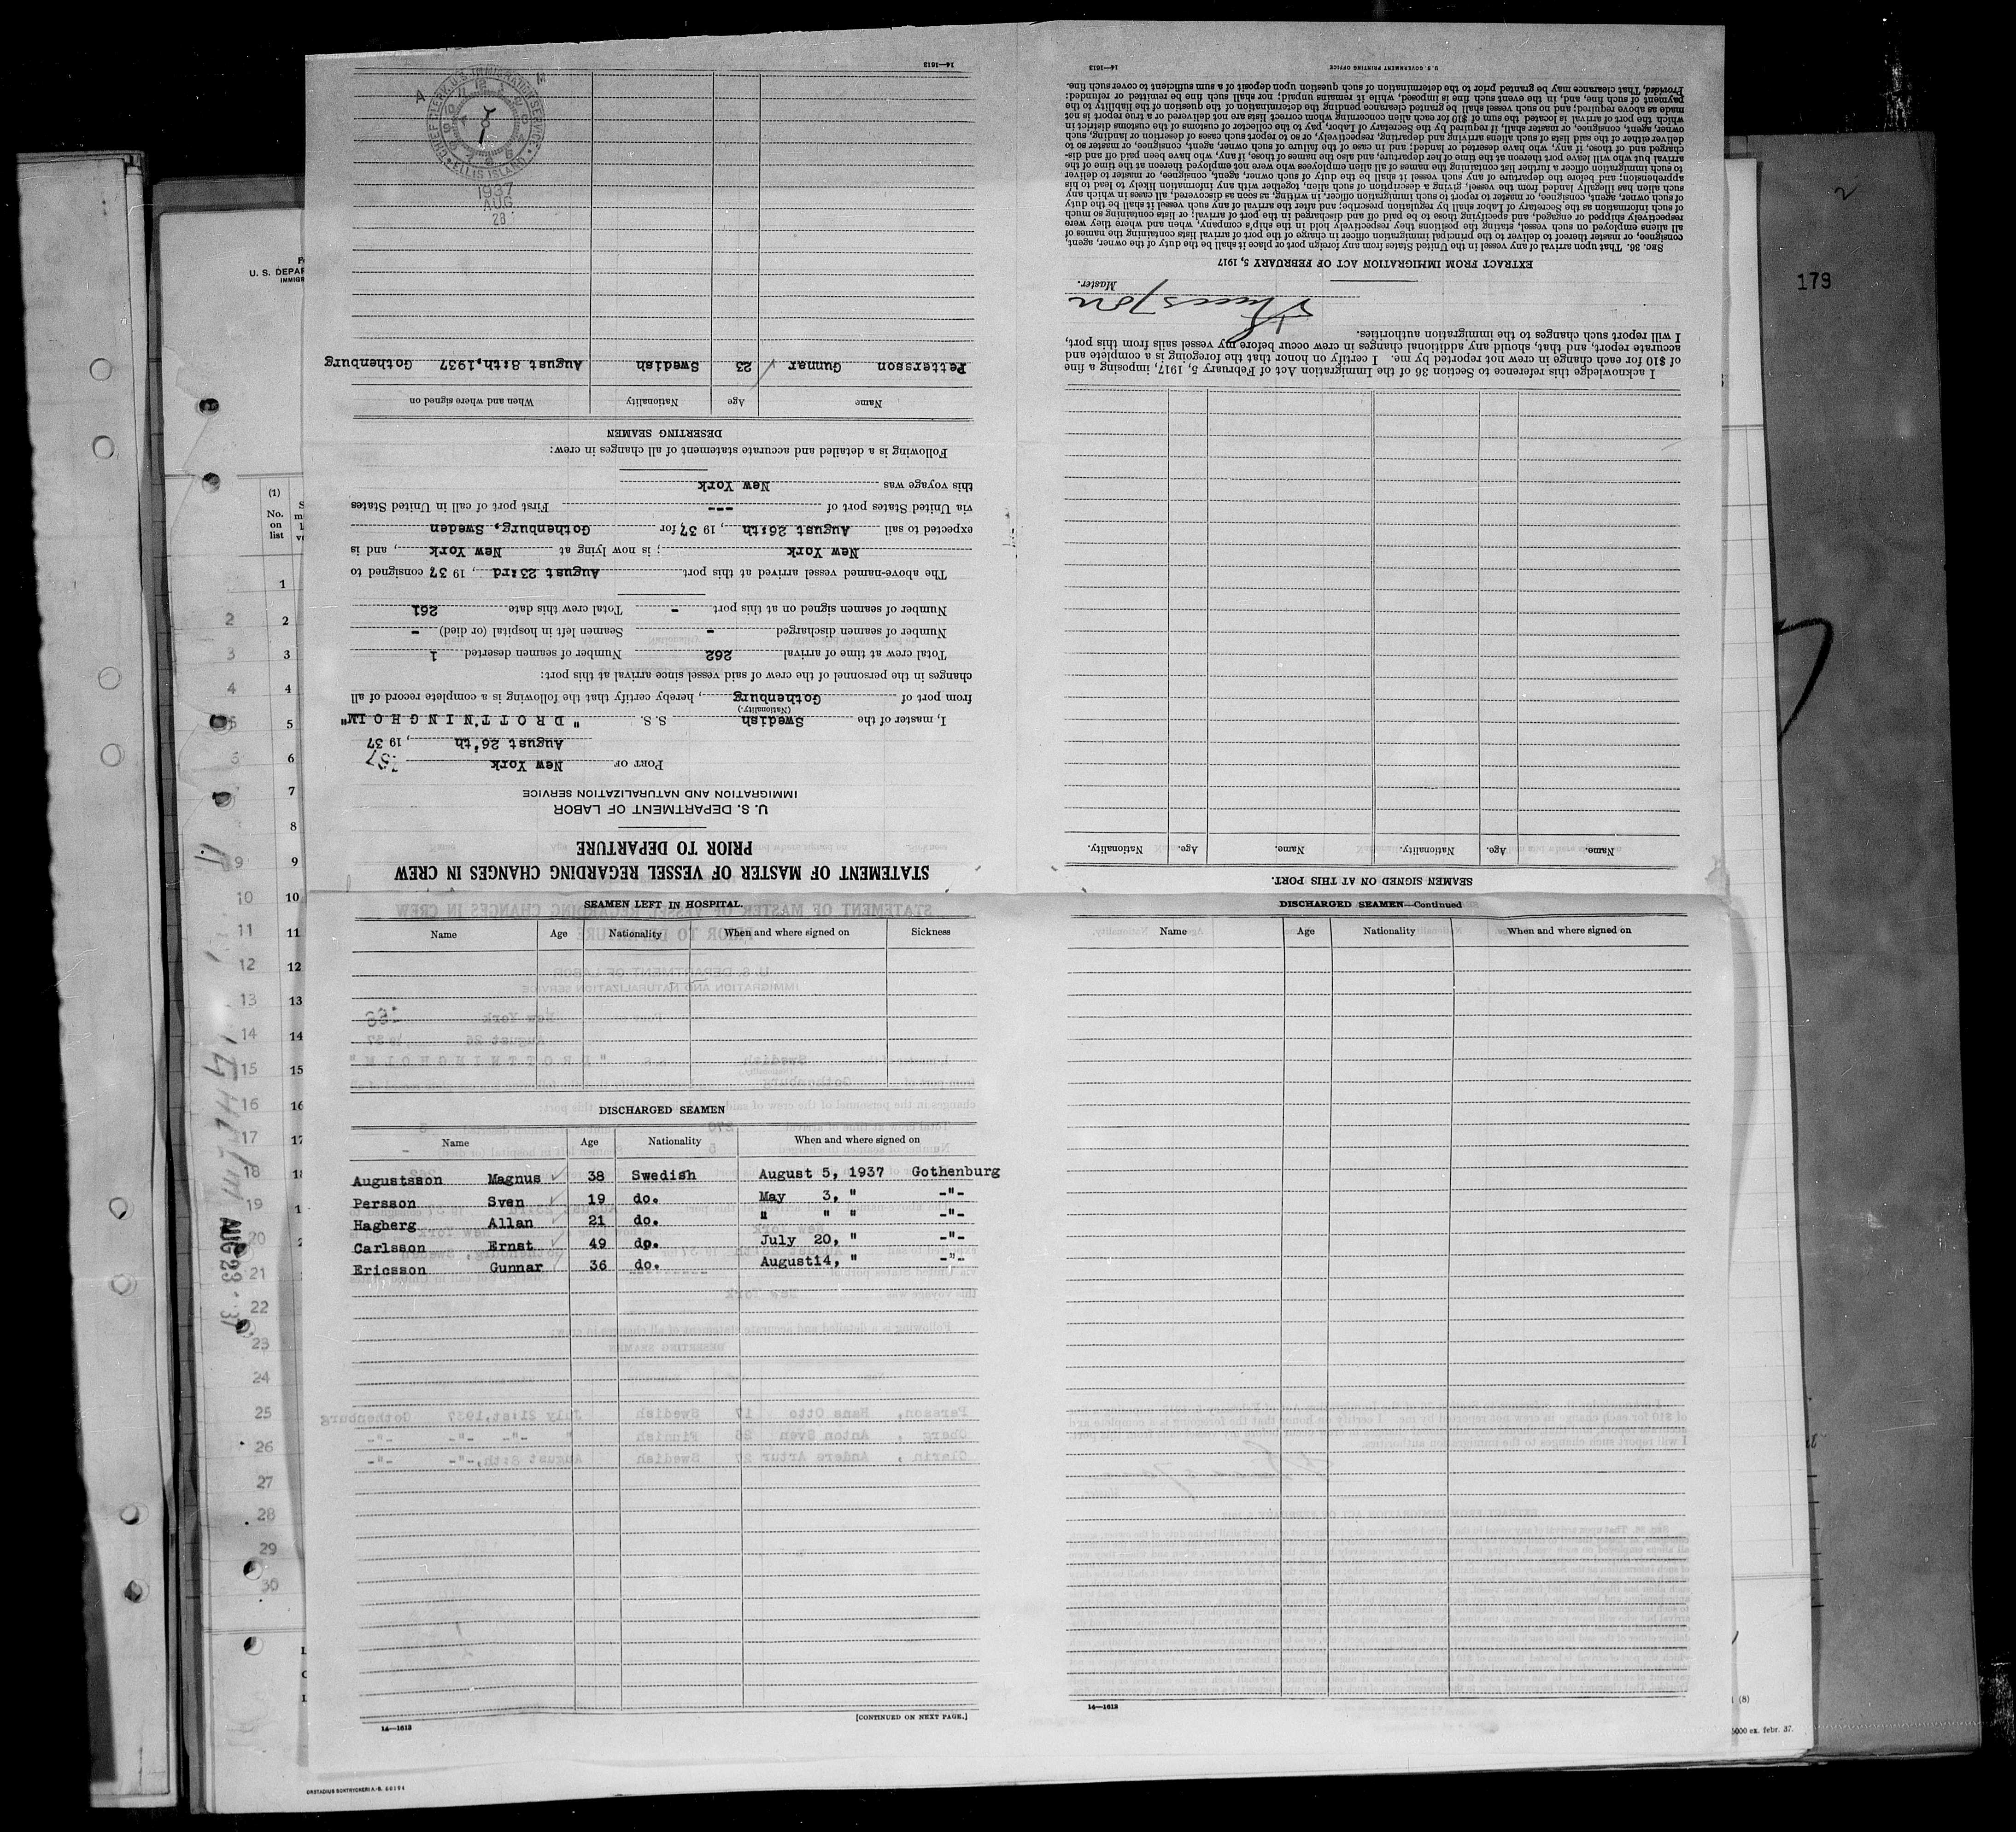 STATEMENT OF MASTER OF VESSEL REGARDING CHANGES IN CREW
PRIOR TO DEPARTURE
U. S. DEPARTMENT OF LABOR
IMMIGRATION AND NATURALIZATION SERVICE
PORT OF New York
August 26'th, 1937
I, master of the Swedish S. S. "DROTTNINGHOLM"
(Nationality.)
from port of Gothenburg, hereby certify that the following is a complete record of all
changes in the personnel of the crew of said vessel since arrival at this port:
Total crew at time of arrival 262 Number of seamen deserted 1
Number of seamen discharged - Seamen left in hospital (or died) -
Number of seamen signed on at this port - Total crew this date 261
The above-named vessel arrived at this port August 23:rd, 1937 consigned to
New York; is now lying at New York, and is
expected to sail August 26:th, 1937 for Gothenburg, Sweden
via United States port of --- First port of call in United States
this voyage was New York
Following is a detailed and accurate statement of all changes in crew:
DESERTING SEAMEN
Name Age Nationality When and where signed on
Pettersson Gunnar 23 Swedish August 8:th,1937 Gothenburg
CHIEF CLERK, U.S. IMMIGRATION SERVICE
ELLIS ISLAND
1937
AUG
28
14—1613
SEAMEN SIGNED ON AT THIS PORT.
Name. Age. Nationality. Name. Age. Nationality.
I acknowledge this reference to Section 36 of the Immigration Act of February 5, 1917, imposing a fine
of $10 for each change in crew not reported by me. I certify on honor that the foregoing is a complete and
accurate report, and that, should any additional changes in crew occur before my vessel sails from this port,
I will report such changes to the immigration authorities.
Master.
EXTRACT FROM IMMIGRATION ACT OF FEBRUARY 5, 1917
SEC. 36. That upon arrival of any vessel in the United States from any foreign port or place it shall be the duty of the owner, agent,
consignee, or master thereof to deliver to the principal immigration officer in charge of the port of arrival lists containing the names of
all aliens employed on such vessel, stating the positions they respectively hold in the ship's company, when and where they were
respectively shipped or engaged, and specifying those to be paid off and discharged in the port of arrival; or lists containing so much
of such information as the Secretary of Labor shall by regulation prescribe; and after the arrival of any such vessel it shall be the duty
of such owner, agent, consignee, or master to report to such immigration officer, in writing, as soon as discovered, all cases in which any
such alien has illegally landed from the vessel, giving a description of such alien, together with any information likely to lead to his
apprehension; and before the departure of any such vessel it shall be the duty of such owner, agent, consignee, or master to deliver
to such immigration officer a further list containing the names of all alien employees who were not employed thereon at the time of the
arrival but who will leave port thereon at the time of her departure, and also the names of those, if any, who have been paid off and dis-
charged and of those, if any, who have deserted or landed; and in case of the failure of such owner, agent, consignee, or master so to
deliver either of the said lists of such aliens arriving and departing, respectively, or so to report such cases of desertion or landing, such
owner, agent, consignee, or master shall, if required by the Secretary of Labor, pay to the collector of customs of the customs district in
which the port of arrival is located the sum of $10 for each alien concerning whom correct lists are not delivered or a true report is not
made as above required; and no such vessel shall be granted clearance pending the determination of the question of the liability to the
payment of such fine, and, in the event such fine is imposed, while it remains unpaid; nor shall such fine be remitted or refunded:
Provided, That clearance may be granted prior to the determination of such question upon deposit of a sum sufficient to cover such fine.
14—1613 U. S. GOVERNMENT PRINTING OFFICE
SEAMEN LEFT IN HOSPITAL.
Name Age Nationality When and where signed on Sickness
DISCHARGED SEAMEN
Name Age Nationality When and where signed on
Augustsson Magnus 38 Swedish August 5, 1937 Gothenburg
Persson Sven 19 do. May 3, " -"-
Hagberg Allan 21 do. " " " -"-
Carlsson Ernst 49 do. July 20, " -"-
Ericsson Gunnar 36 do. August14, " -"-
[CONTINUED ON NEXT PAGE.]
14—1613
DISCHARGED SEAMEN—Continued
Name Age Nationality When and where signed on
14—1613
179
U. S. DEPAR
(1)
No.
on
list
1
2
3
4
5
6
7
8
9
10
11
12
13
14
15
16
17
18
19
20
21
22
23
24
25
26
27
28
29
30
AUG 23 · 37
(8)
5000 ex. febr. 37.